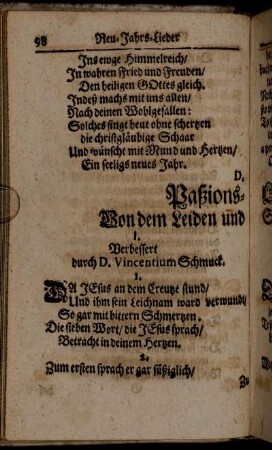 98 Neu-Jahrs-Lieder
Ins ewge Himmelreich/
In wahren Fried und Freuden/
Den heiligen GOttes gleich.
Indeß machs mit uns allen/
Nach deinen Wohlgefallen:
Solches singt heut ohne schertzen
die christgläubige Schaar
Und wünscht mit Mund und Hertzen/
Ein seeligs neues Jahr.
D.
Paßions-
Von dem Leiden und
I.
Verbessert
durch D. Vincentium Schmuck.
1.
DA JEsus an dem Creutze stund/
Und ihm sein Leichnam ward verwundt/
So gar mit bittern Schmertzen.
Die sieben Wort/ die JEsus sprach/
Betracht in deinem Hertzen.
2.
Zum ersten sprach er gar süßiglich/
Zu